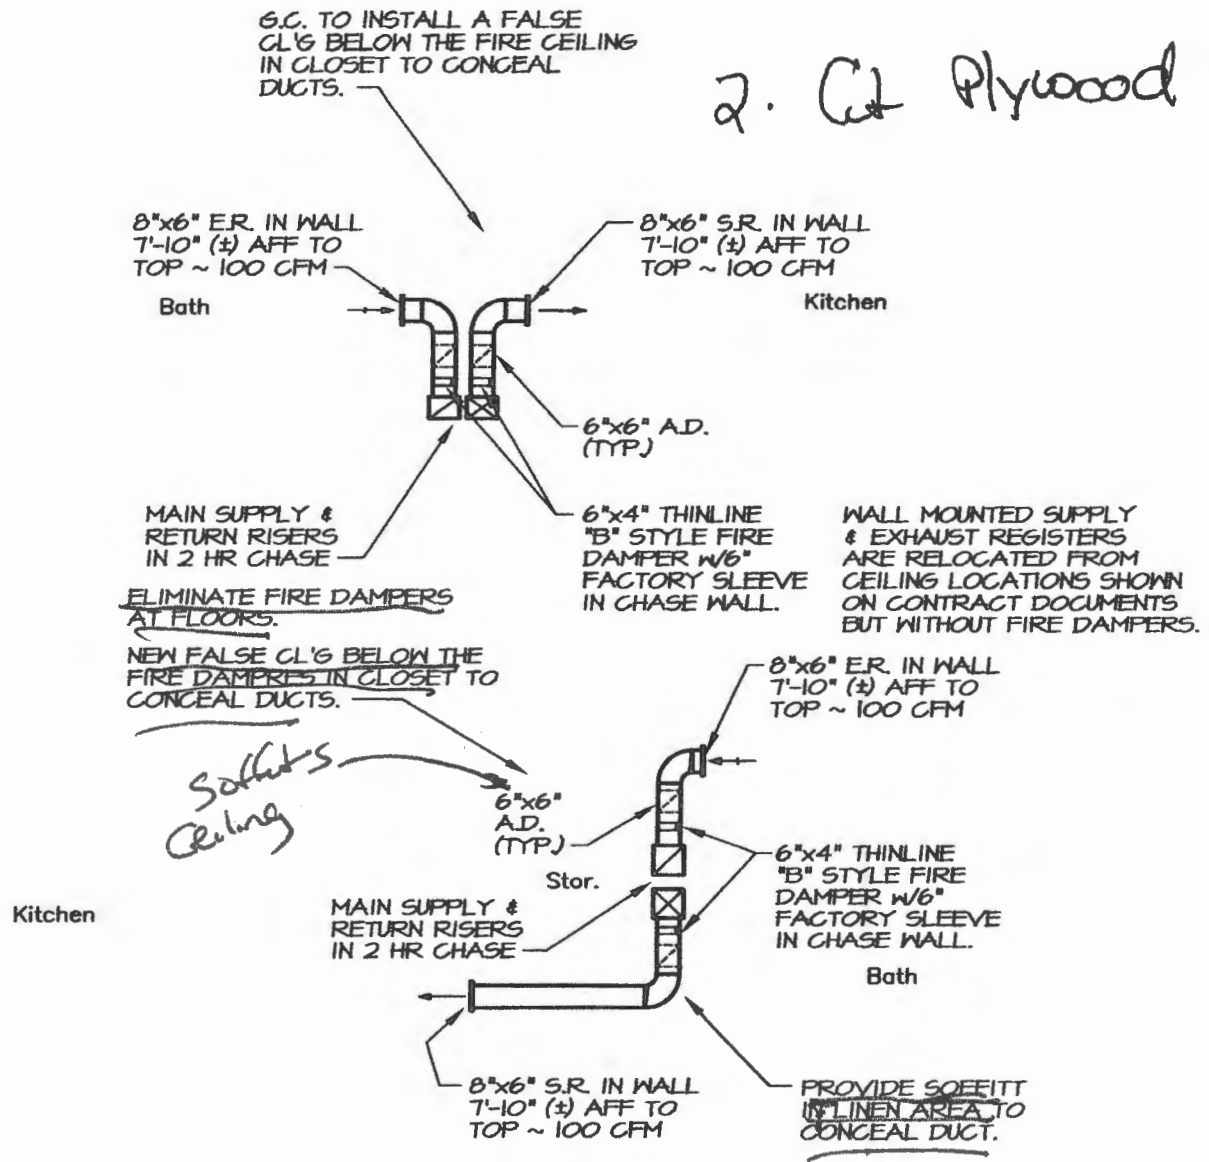 G.C. TO INSTALL A FALSE
CL'G BELOW THE FIRE CEILING
IN CLOSET TO CONCEAL
DUCTS.
2. Cut Plywoood
8"x6" E.R. IN WALL
7'-10" (±) AFF TO
TOP ~ 100 CFM
Bath
8"x6" S.R. IN WALL
7'-10" (±) AFF TO
TOP ~ 100 CFM
Kitchen
6"x6" A.D.
(TYP.)
MAIN SUPPLY &
RETURN RISERS
IN 2 HR CHASE
6"x4" THINLINE
"B" STYLE FIRE
DAMPER w/6"
FACTORY SLEEVE
IN CHASE WALL.
WALL MOUNTED SUPPLY
& EXHAUST REGISTERS
ARE RELOCATED FROM
CEILING LOCATIONS SHOWN
ON CONTRACT DOCUMENTS
BUT WITHOUT FIRE DAMPERS.
ELIMINATE FIRE DAMPERS
AT FLOORS.
NEW FALSE CL'G BELOW THE
FIRE DAMPRES IN CLOSET TO
CONCEAL DUCTS.
Soffits
Ceiling
8"x6" E.R. IN WALL
7'-10" (±) AFF TO
TOP ~ 100 CFM
6"x6"
A.D.
(TYP.)
Stor.
6"x4" THINLINE
"B" STYLE FIRE
DAMPER w/6"
FACTORY SLEEVE
IN CHASE WALL.
Kitchen
MAIN SUPPLY &
RETURN RISERS
IN 2 HR CHASE
Bath
8"x6" S.R. IN WALL
7'-10" (±) AFF TO
TOP ~ 100 CFM
PROVIDE SOFFITT
IN LINEN AREA TO
CONCEAL DUCT.